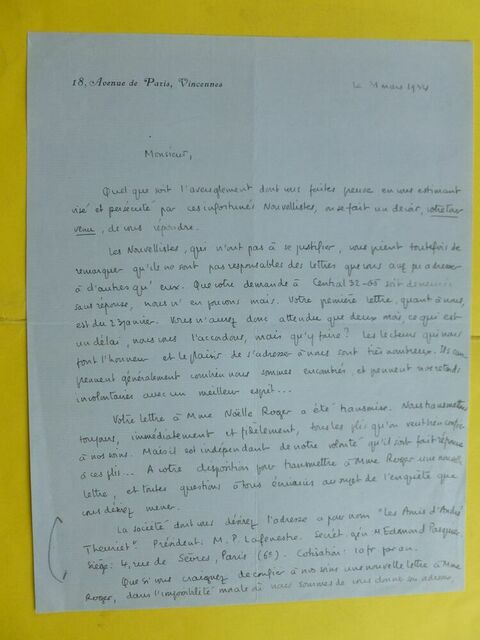 18, Avenue de Paris, Vincennes
le mars 1934
Monsieur,
Quel que soit l'aveuglement dont vous faites preuve en vous estimant
visé et persécuté par ces infortunés Nouvellistes, on se fait un devoir, votre tour
venu, de vous répondre.
Les Nouvellistes, qui n'ont pas à se justifier, vous prient toutefois de
remarquer qu'ils ne sont pas responsables des lettres que vous avez pu adresser
à d'autres qu'eux. Que votre demande à Central 32-65 soit demeurée
sans réponse, nous n'en pouvons mais. Votre première lettre, quant à nous,
est du 23 janvier. Vous n'aurez donc attendu que deux mois, ce qui est
un délai, nous vous l'accordons, mais qu'y faire? Les lecteurs qui nous
font l'honneur et le plaisir de s'adresser à nous sont très nombreux. Ils com-
prennent généralement combien nous sommes encombrés, et prennent nos retards
involontaires avec un meilleur esprit...
Votre lettre à Mme Noëlle Roger a été transmise. Nous transmettons
toujours, immédiatement et fidèlement, tous les plis qu'on veut bien confier
à nos soins. Mais il est indépendant de notre volonté qu'il soit fait réponse
à ces plis... A votre disposition pour transmettre à Mme Roger une nouvelle
lettre, et toutes questions à tous écrivains au sujet de l'enquête que
vous désirez mener.
La société dont vous désirez l'adresse a pour nom "Les Amis d'André
Theuriet". Président: M. P. Lafenestre. Secrét. gén. M. Edmond Pasquier
Siège: 4, rue de Sèvres, Paris (6e). Cotisation: 10 fr par an.
Que si vous craignez de confier à nos soins une nouvelle lettre à Mme
Roger, dans l'impossibilité morale où nous sommes de vous donner son adresse,